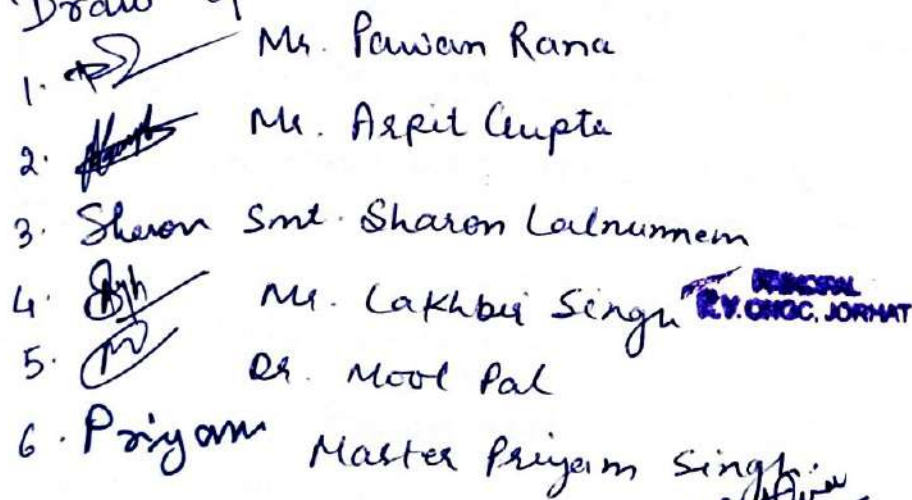 Draw
1. Mr. Pawan Rana
2. Mr. Arpit Gupta
3. Sharon Smt. Sharon Lalnunnem
4. Mr. Lakhbir Singh PRINCIPAL
K.V. ONGC, JORHAT
5. Dr. Mool Pal
6. Priyam Master Priyam Singh.